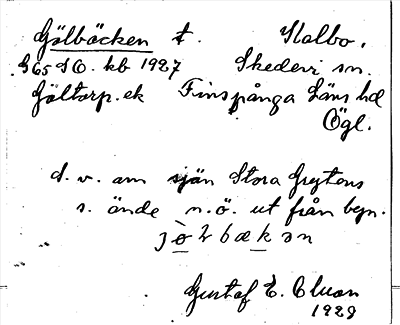 Gölbäcken t. Kalbo.
G65 SO. kb 1927 Skedevi sn.
Göltorp. ek Finspånga Läns hd
Ögl.
d. v. om sjön Stora Gryten
s. ände n.ö. ut från byn.
Gustaf E.
1929